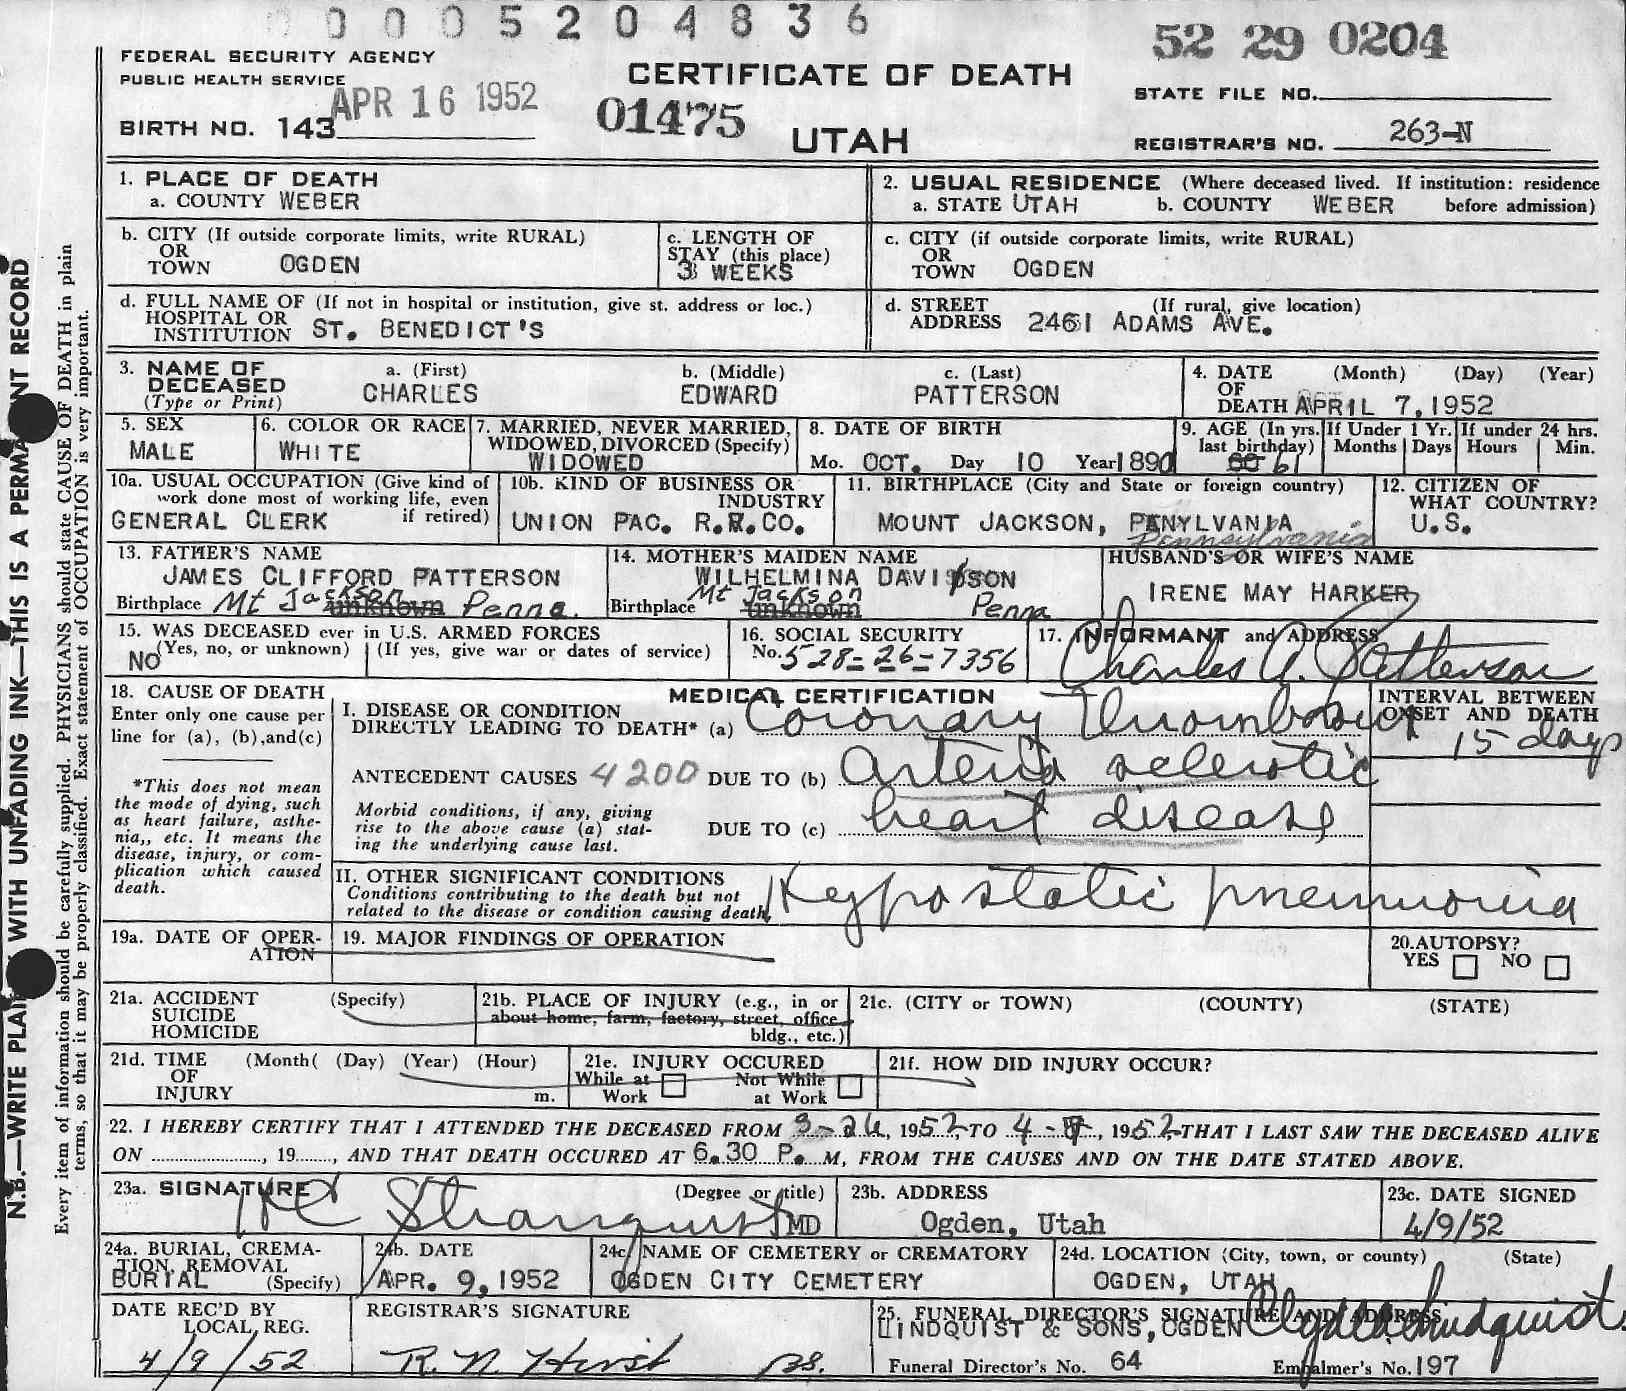 0 0 0 5 2 0 4 8 3 6
52 29 0204
FEDERAL SECURITY AGENCY
PUBLIC HEALTH SERVICE
APR 16 1952
CERTIFICATE OF DEATH
STATE FILE NO.
BIRTH NO. 143
01475
UTAH
REGISTRAR'S NO. 263-N
1. PLACE OF DEATH
a. COUNTY WEBER
2. USUAL RESIDENCE (Where deceased lived. If institution: residence
a. STATE UTAH b. COUNTY WEBER before admission)
b. CITY (If outside corporate limits, write RURAL)
OR
TOWN OGDEN
c. LENGTH OF
STAY (this place)
3 WEEKS
c. CITY (if outside corporate limits, write RURAL)
OR
TOWN OGDEN
d. FULL NAME OF (If not in hospital or institution, give st. address or loc.)
HOSPITAL OR
INSTITUTION ST. BENEDICT'S
d. STREET (If rural, give location)
ADDRESS 2461 ADAMS AVE.
3. NAME OF
DECEASED
(Type or Print)
a. (First)
CHARLES
b. (Middle)
EDWARD
c. (Last)
PATTERSON
4. DATE (Month) (Day) (Year)
OF
DEATH APRIL 7, 1952
5. SEX
MALE
6. COLOR OR RACE
WHITE
7. MARRIED, NEVER MARRIED,
WIDOWED, DIVORCED (Specify)
WIDOWED
8. DATE OF BIRTH
Mo. OCT. Day 10 Year 1890
9. AGE (In yrs.
last birthday)
60 61
If Under 1 Yr.
Months Days
If under 24 hrs.
Hours Min.
10a. USUAL OCCUPATION (Give kind of
work done most of working life, even
GENERAL CLERK if retired)
10b. KIND OF BUSINESS OR
INDUSTRY
UNION PAC. R.R.CO.
11. BIRTHPLACE (City and State or foreign country)
MOUNT JACKSON, PENYLVANIA
Pennsylvania
12. CITIZEN OF
WHAT COUNTRY?
U.S.
13. FATHER'S NAME
JAMES CLIFFORD PATTERSON
Birthplace Mt Jackson unknown Penna.
14. MOTHER'S MAIDEN NAME
WILHELMINA DAVIDSON
Birthplace Mt Jackson unknown Penna
HUSBAND'S OR WIFE'S NAME
IRENE MAY HARKER
15. WAS DECEASED ever in U.S. ARMED FORCES
(Yes, no, or unknown) (If yes, give war or dates of service)
NO
16. SOCIAL SECURITY
No. 528-26-7356
17. INFORMANT and ADDRESS
Charles A. Patterson
18. CAUSE OF DEATH
Enter only one cause per
line for (a), (b),and(c)
*This does not mean
the mode of dying, such
as heart failure, asthe-
nia,, etc. It means the
disease, injury, or com-
plication which caused
death.
MEDICAL CERTIFICATION
I. DISEASE OR CONDITION
DIRECTLY LEADING TO DEATH* (a) Coronary Thrombosis
ANTECEDENT CAUSES 4200 DUE TO (b) Arterio sclerotic
Morbid conditions, if any, giving
rise to the above cause (a) stat-
ing the underlying cause last.
DUE TO (c) heart disease
INTERVAL BETWEEN
ONSET AND DEATH
15 days
II. OTHER SIGNIFICANT CONDITIONS
Conditions contributing to the death but not
related to the disease or condition causing death.
Hypostatic pneumonia
19a. DATE OF OPER-
ATION
19. MAJOR FINDINGS OF OPERATION
20.AUTOPSY?
YES NO
21a. ACCIDENT (Specify)
SUICIDE
HOMICIDE
21b. PLACE OF INJURY (e.g., in or
about home, farm, factory, street, office
bldg., etc.)
21c. (CITY or TOWN) (COUNTY) (STATE)
21d. TIME (Month( (Day) (Year) (Hour)
OF
INJURY m.
21e. INJURY OCCURED
While at Not While
Work at Work
21f. HOW DID INJURY OCCUR?
22. I HEREBY CERTIFY THAT I ATTENDED THE DECEASED FROM 3-26, 1952, TO 4-7, 1952, THAT I LAST SAW THE DECEASED ALIVE
ON ............, 19......, AND THAT DEATH OCCURED AT 6.30 P. M, FROM THE CAUSES AND ON THE DATE STATED ABOVE.
23a. SIGNATURE (Degree or title)
Stranquist MD
23b. ADDRESS
Ogden, Utah
23c. DATE SIGNED
4/9/52
24a. BURIAL, CREMA-
TION, REMOVAL
BURIAL (Specify)
24b. DATE
APR. 9, 1952
24c. NAME OF CEMETERY or CREMATORY
OGDEN CITY CEMETERY
24d. LOCATION (City, town, or county) (State)
OGDEN, UTAH
DATE REC'D BY
LOCAL REG.
4/9/52
REGISTRAR'S SIGNATURE
R. N. Hirst
25. FUNERAL DIRECTOR'S SIGNATURE AND ADDRESS
LINDQUIST & SONS, OGDEN Clyde Lindquist
Funeral Director's No. 64 Embalmer's No. 197
N.B.—WRITE PLAINLY WITH UNFADING INK—THIS IS A PERMANENT RECORD
Every item of information should be carefully supplied. PHYSICIANS should state CAUSE OF DEATH in plain
terms, so that it may be properly classified. Exact statement of OCCUPATION is very important.